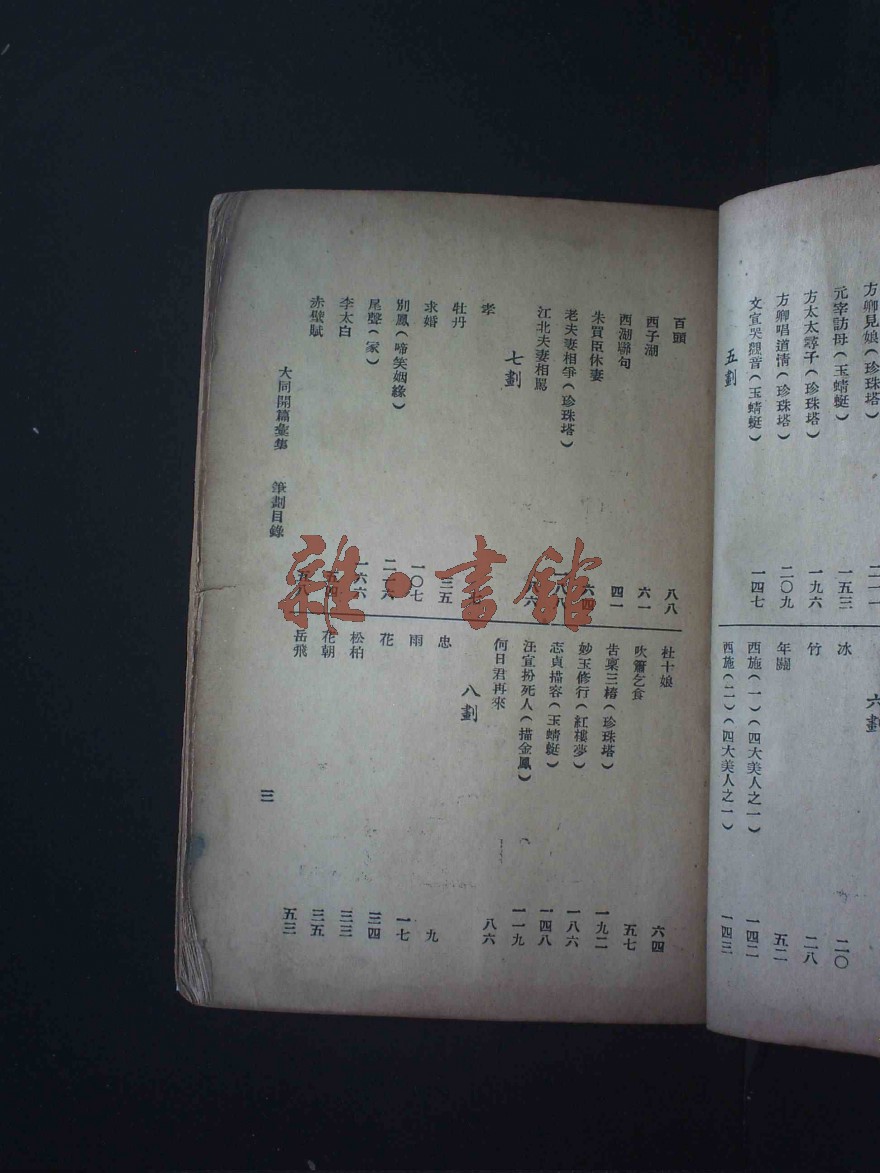 方卿見娘(珍珠塔) 二一一
元宰訪母(玉蜻蜓) 一五三
方太太諄子(珍珠塔) 一九六
方卿唱道情(珍珠塔) 二〇九
文宣哭觀音(玉蜻蜓) 一四七
五劃
六劃
冰 二〇
竹 二八
年關 五二
西施(一)(四大美人之一) 一四二
西施(二)(四大美人之一) 一四三
百頭 八八
西子湖 六一
西湖聯句 四一
朱買臣休妻 六四
老夫妻相爭(珍珠塔)
江北夫妻相罵 八六
七劃
孝
牡丹 三五
求婚 一〇七
別鳳(啼笑姻緣) 二一六
尾聲(家) 一六六
李太白 五四
赤壁賦 五八
杜十娘 六四
吹簫乞食 五七
告稟三樁(珍珠塔) 一九二
妙玉修行(紅樓夢) 一八六
志貞描容(玉蜻蜓) 一四八
汪宣扮死人(描金鳳) 一一九
何日君再來 八六
八劃
忠 九
雨 一七
花 三四
松柏 三三
花朝 三五
岳飛 五三
大同開篇彙集 筆劃目錄
三
雜·書館